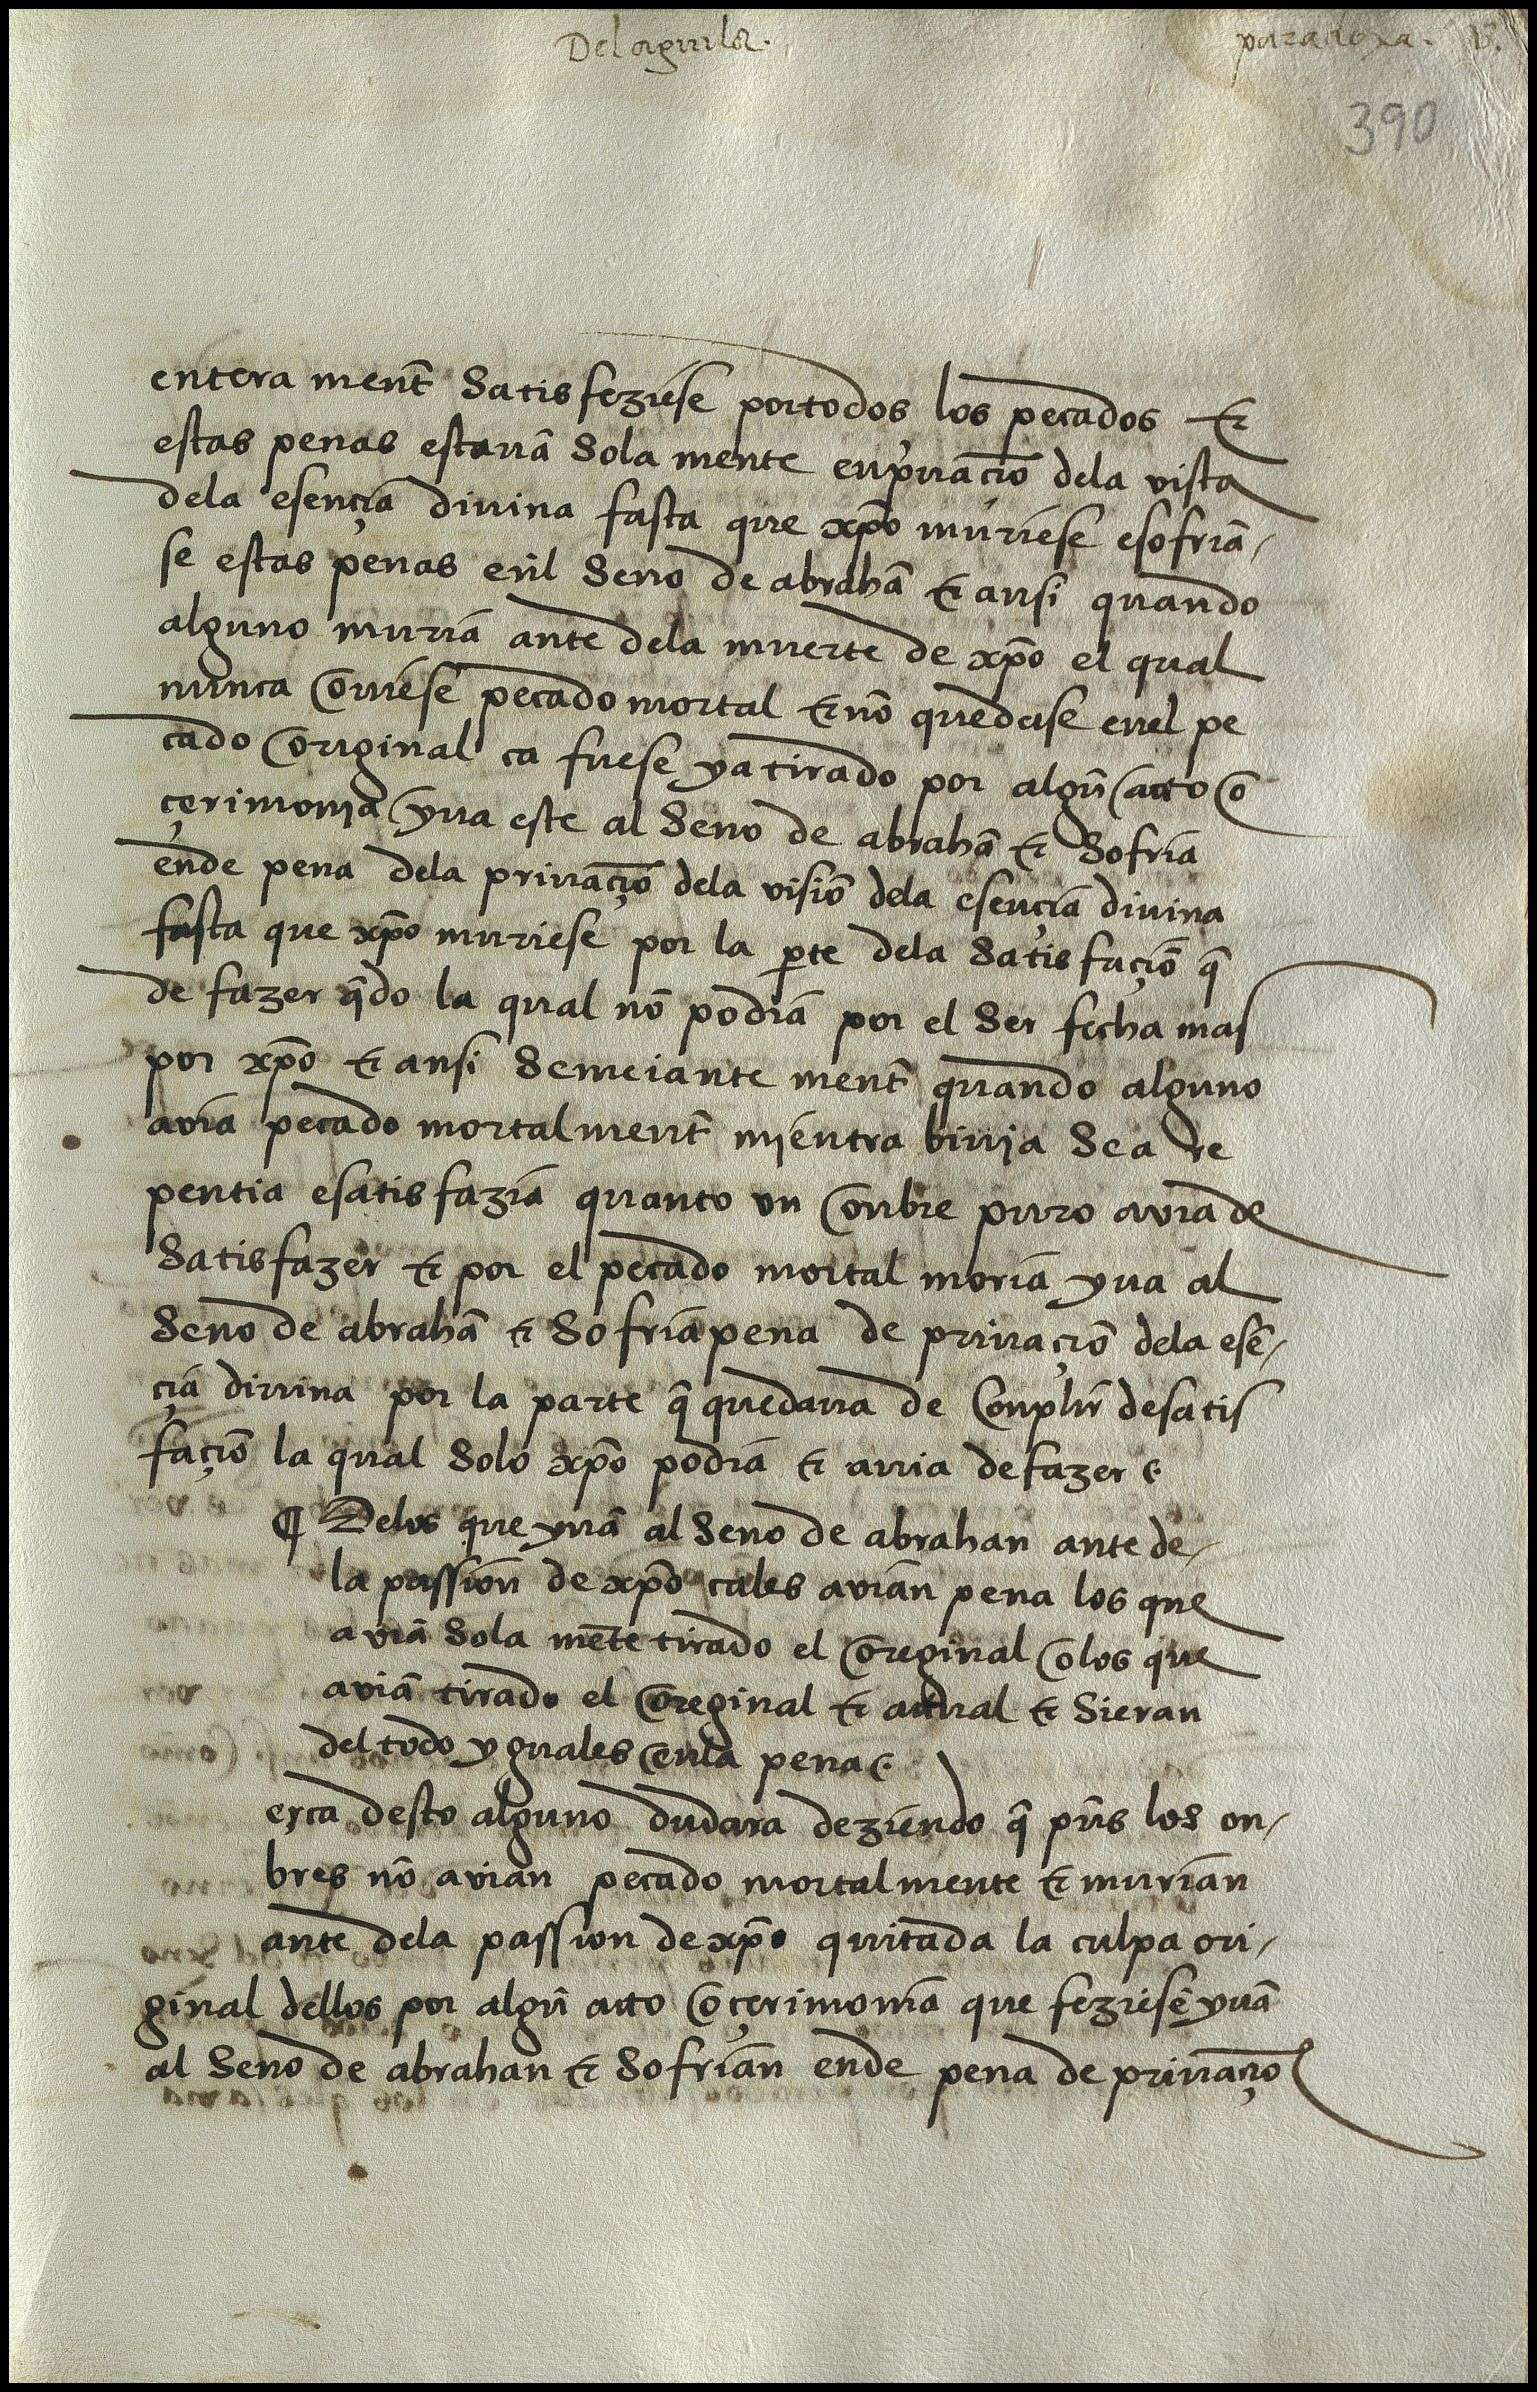 Del aguila. paradoxa. v.
390
entera ment̃ satisfeziese por todos los pecados ⁊
estas penas estauã sola mente enpͥuaciõ dela vista
dela esençia diuina fasta que xp̃o muriese esofriã-
se estas penas eñl seno de abrahã ⁊ ansi quando
alguno muria ante dela muerte de xp̃o el qual
nunca ouiese pecado mortal ⁊ nõ quedase enel pe
cado original ca fuese ya tirado por algũ acto o
çerimonia yua este al seno de abrahã ⁊ sofria
ende pena dela priuaçiõ dela visiõ dela esençia diuina
fasta que xp̃o muriese por la p̱te dela satisfaçiõ q̃
de fazer q̃do la qual nõ podia por el ser fecha mas
por xp̃o ⁊ ansi semeiante ment̃ quando alguno
auia pecado mortalment̃ mientra biuia se a re
pentia esatisfazia quanto vn onbre puro auia de
satisfazer ⁊ por el pecado mortal moria yua al
seno de abrahã ⁊ sofria pena de priuaçiõ dela esẽ-
çia diuina por la parte q̃ quedaua de conplir̃ desatis
façiõ la qual solo xp̃o podia ⁊ auia defazer.
¶ Delos que yuã al seno de abrahan ante de-
la passion de xp̃o cales auian pena los que
auiã sola mẽte tirado el oreginal o los que
auiã tirado el oreginal ⁊ actual ⁊ sieran
del todo yguales enla pena.
erca desto alguno dudara deziendo q̃ pũs los on-
bres nõ auian pecado mortalmente ⁊ murian
ante dela passion de xp̃o quitada la culpa ori-
ginal dellos por algũ acto o çerimonia que feziesẽ yuã
al seno de abrahan ⁊ sofrian ende pena de priuaçiõ